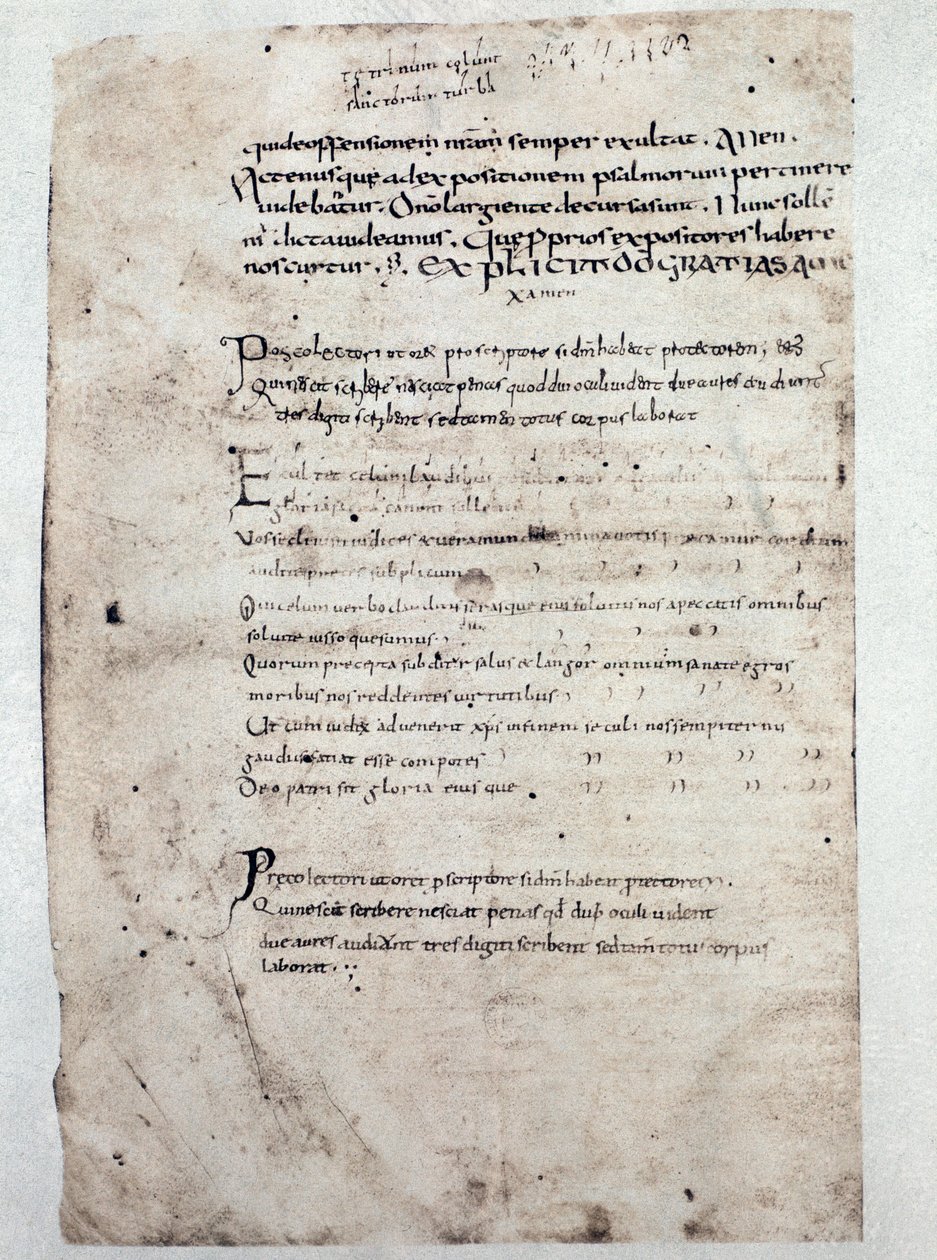 te trinum colunt
sanctorum turba
qui de offensionem nr̄am semper exultat. Amen.
Actenus que ad expositionem psalmorum pertinere
uidebatur. Dn̄o largiente decursa sunt. Nunc solle
dicta uideamus. Que p̱prios expositores habere
noscuntur. EXPLICIT DO GRATIAS AMEN
Xamen
Posco lectori ut oret pro scriptore si dm̄ habeat protectorem,
Qui nescit scribere nesciat penas quod duo oculi vident due aures audiunt
tres digiti scribent sed tamen totus corpus laborat
Exultet celum laudibus
gloriam canunt sollemnia
Vos secli iusti iudices & vera mundi lumina votis precamur cordium
audite preces subplicum
Qui celum verbo clauditis serasque eius soluitis nos a peccatis omnibus
soluite iusso quesumus.
Quorum precepta subditur salus & langor omnium sanate egros
moribus nos reddentes uirtutibus
Ut cum iudex advenerit xp̄s in finem seculi nos sempiternis
gaudiis fatiat esse compotes
Deo patri sit gloria eius que
Preco lectori ut oret p scriptore si dm̄ habeat protectorem.
Qui nescit scribere nesciat penas qd̄ duo oculi uident
due aures audiant tres digiti scribent sed tam̄ totus corpus
laborat.